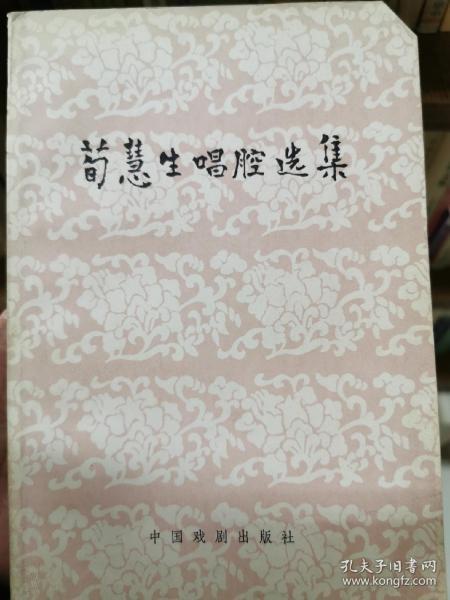 荀慧生唱腔选集
中国戏剧出版社
孔夫子旧书网
www.kongfz.com